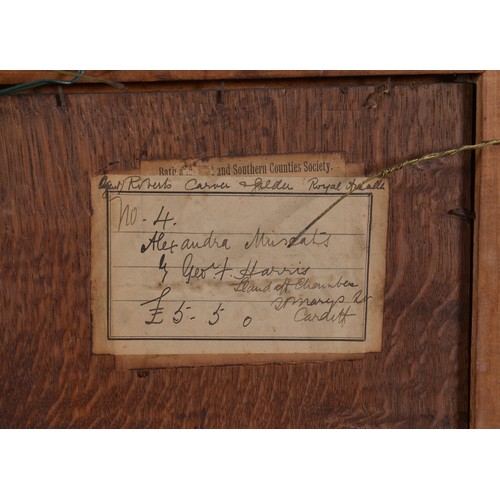 Bath and West and Southern Counties Society.
Roberts Carver & Gilder Royal Arcade
No. 4.
Alexandra Muscats
by Geo. F. Harris
Llandaff Chambers
St Marys
Cardiff
£ 5 - 5 0